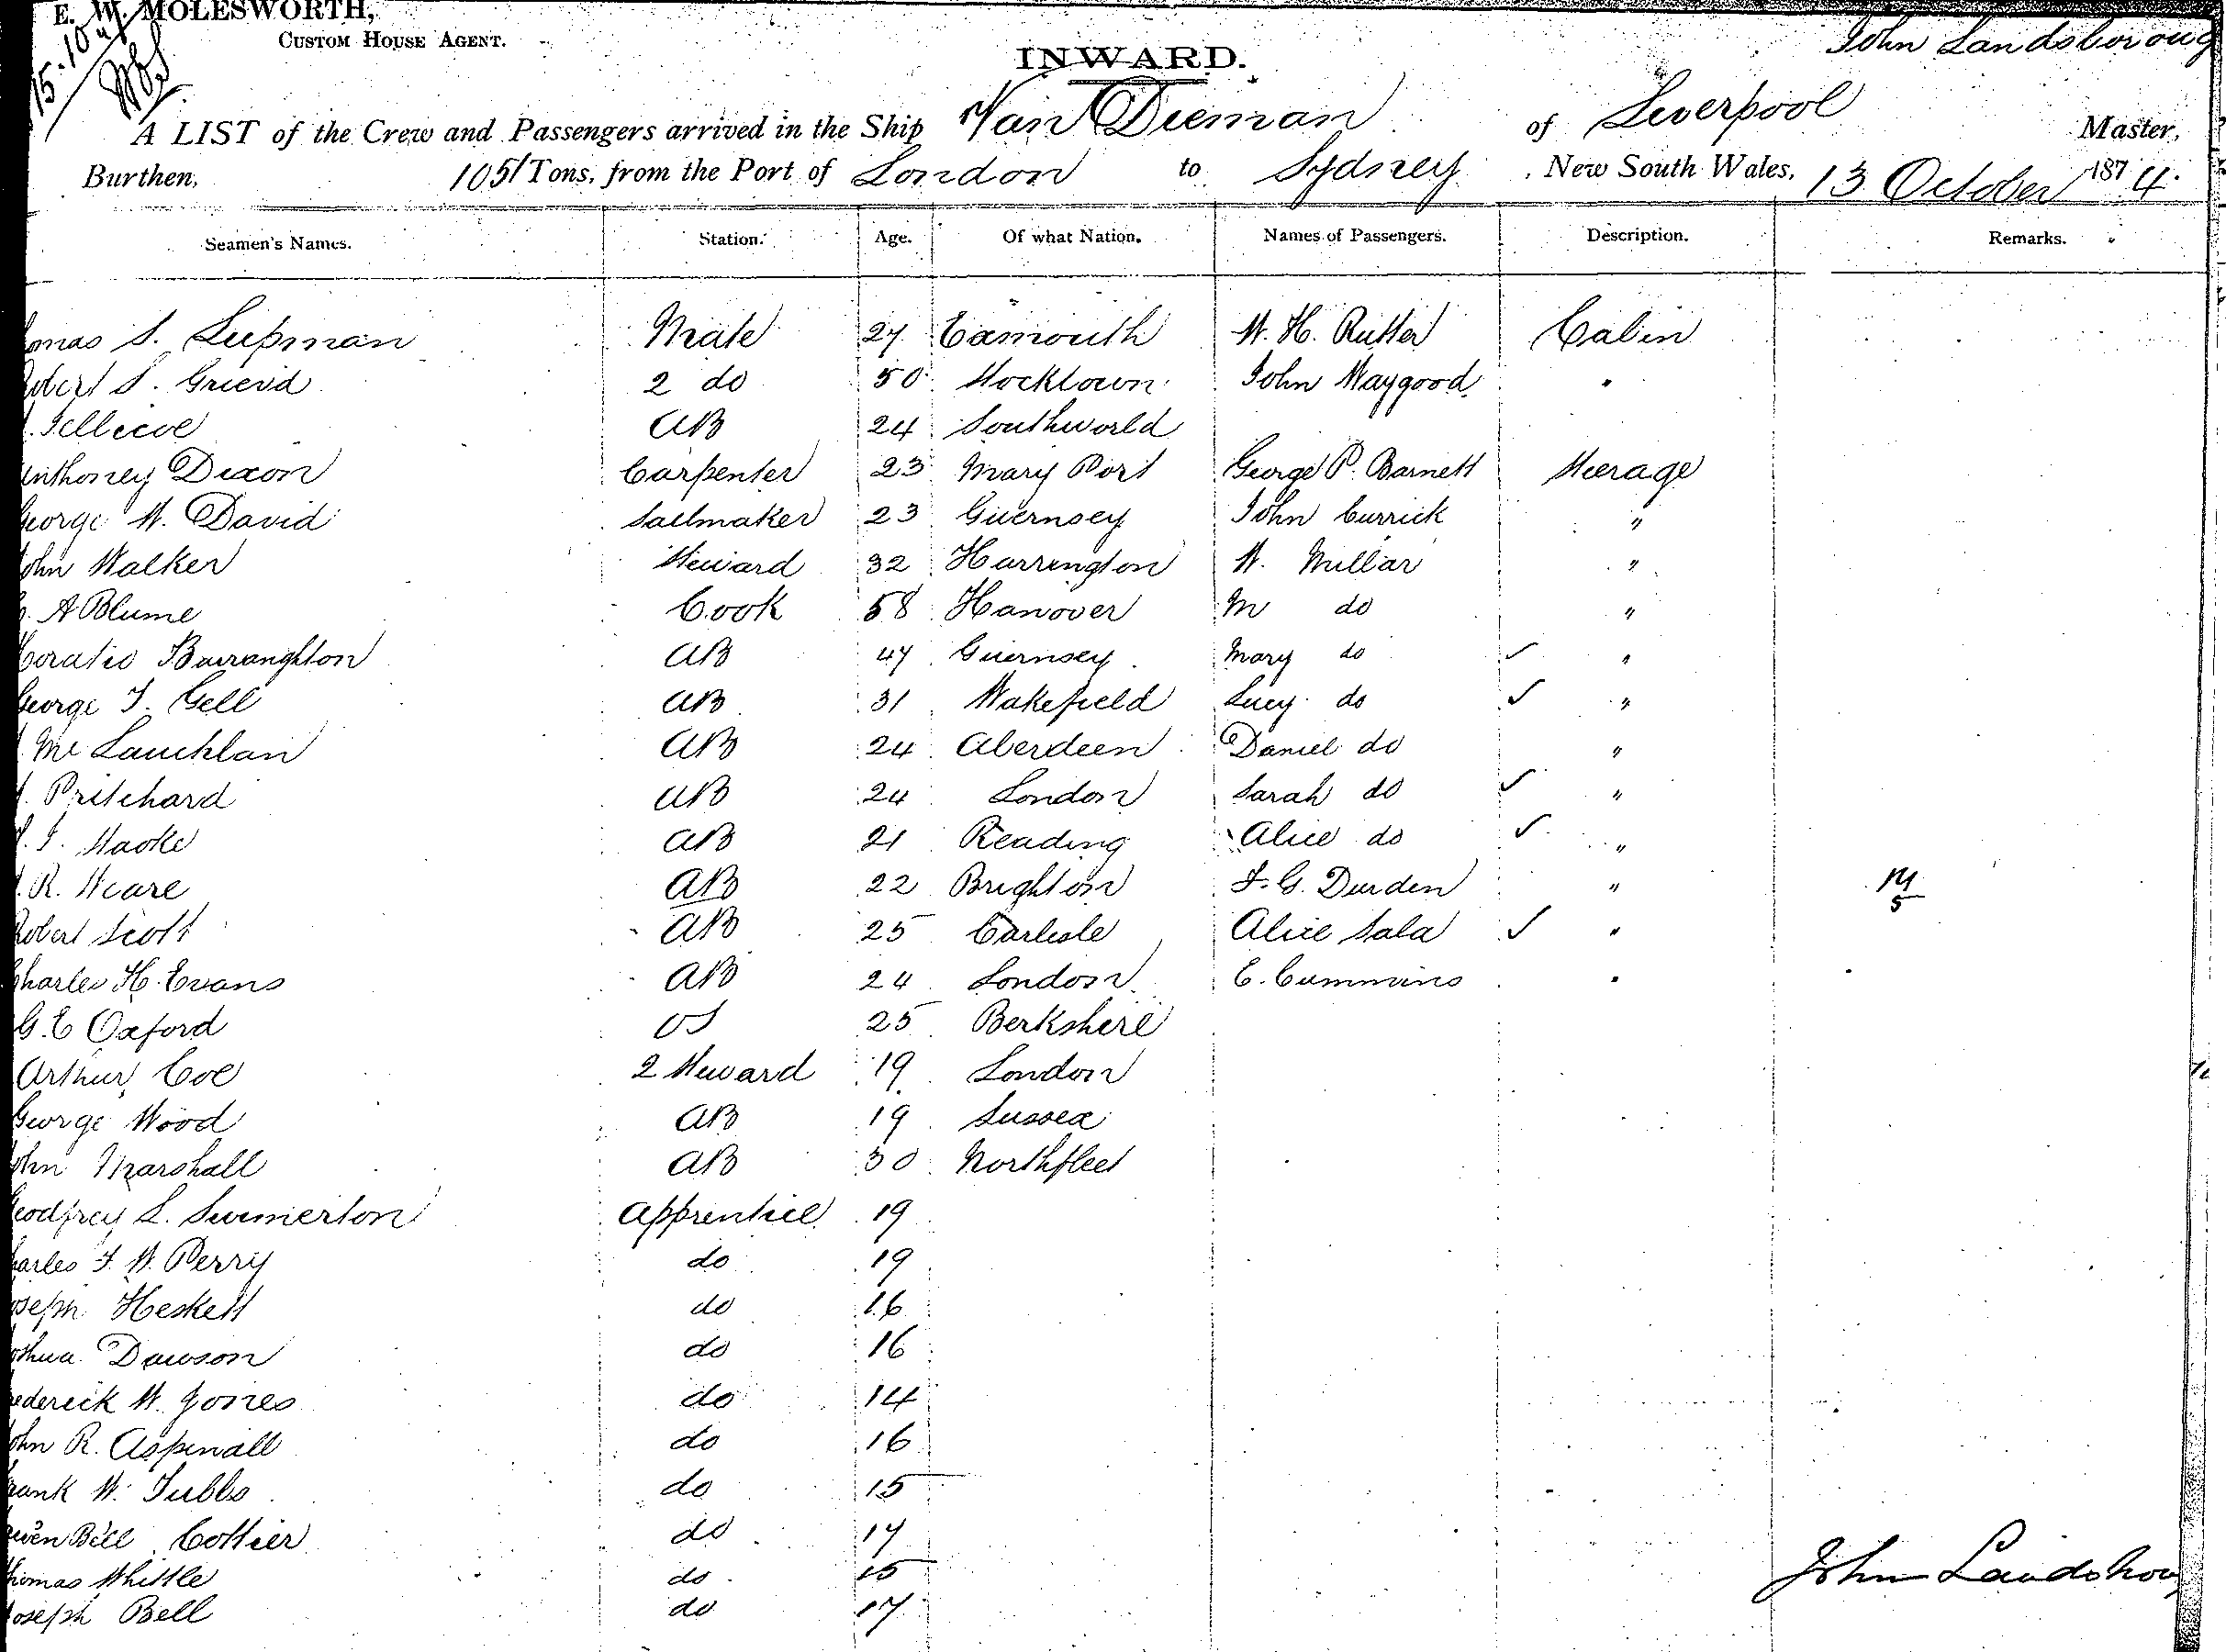 E. W. MOLESWORTH,
CUSTOM HOUSE AGENT.
15.10
INWARD.
John Landsboroug
A LIST of the Crew and Passengers arrived in the Ship Van Dieman of Liverpool Master,
Burthen, 1051 Tons, from the Port of London to Sydney, New South Wales, 13 October 1874.
Seamen's Names. Station. Age. Of what Nation. Names of Passengers. Description. Remarks.
omas S. Lupman Mate 27 Exmouth W. H. Rutter Cabin
obert S. Grievd 2 do 50 Stocktown John Maygood "
Jellicoe AB 24 Southworld
nthoney Dixon Carpenter 23 Mary Port George P. Barnett Steerage
George W. David Sailmaker 23 Guernsey John Currick "
ohn Walker Steward 32 Harrington W. Millar "
A Blume Cook 58 Hanover M do "
Horatio Barranghton AB 47 Guernsey Mary do ✓ "
George T. Gell AB 31 Wakefield Lucy do ✓ "
Mc Lauchlan AB 24 Aberdeen Daniel do "
Pritchard AB 24 London Sarah do ✓ "
J. Hacke AB 21 Reading Alice do ✓ "
R. Weare AB 22 Brighton F. G. Durden " 14/5
Robert Scott AB 25 Carlisle Alice Sala ✓ "
Charles H. Evans AB 24 London E. Cummins "
G. E Oxford OS 25 Berkshire
Arthur Coe 2 Steward 19 London
George Wood AB 19 Sussex
ohn Marshall AB 30 Northfleet
eodfrey L. Swimerton Apprentice 19
harles F. W. Perry do 19
oseph Heskett do 16
oshua Dawson do 16
rederick W. Jones do 14
ohn R. Aspinall do 16
rank W. Tubbs do 15
wen Bell Cottier do 17
homas Whittle do 15
Joseph Bell do 17
John Landsborou